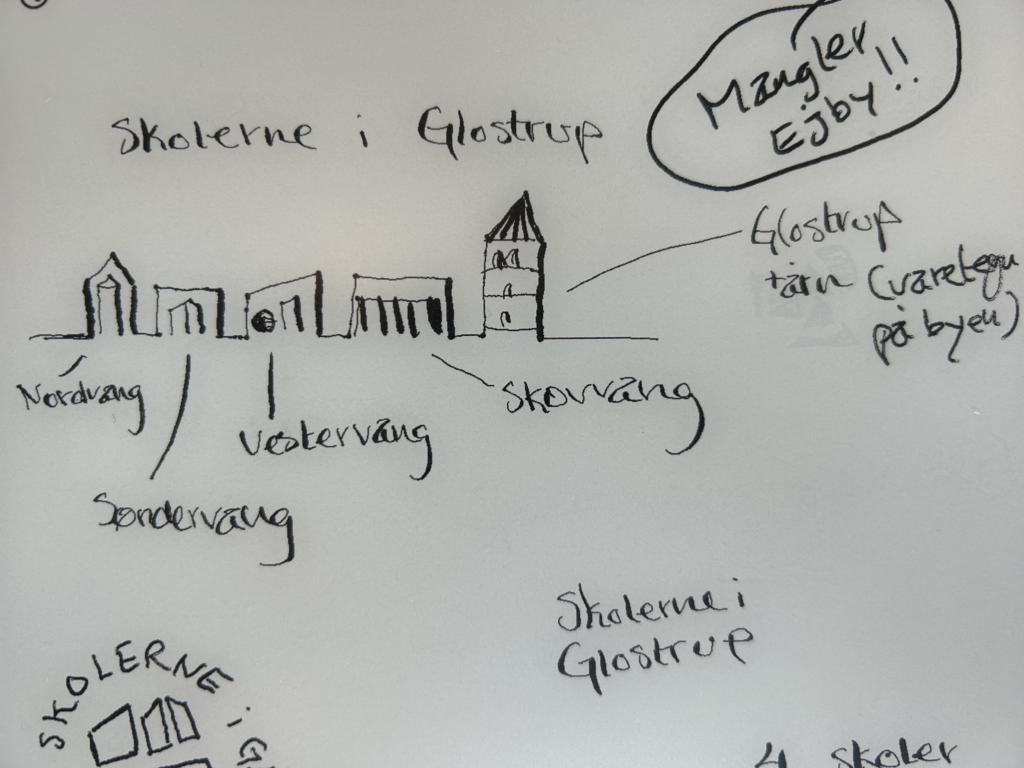 Mangler
Ejby!!
Skolerne i Glostrup
Glostrup
tårn (varetegn
på byen)
Nordvang
Skovvang
Vestervang
Søndervang
Skolerne i
Glostrup
SKOLERNE i G
4 skoler